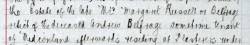 the Estate of the late Mrs Margaret Russell or Belfrage
relict of the deceased Andrew Belfrage sometime
of afterwards residing at